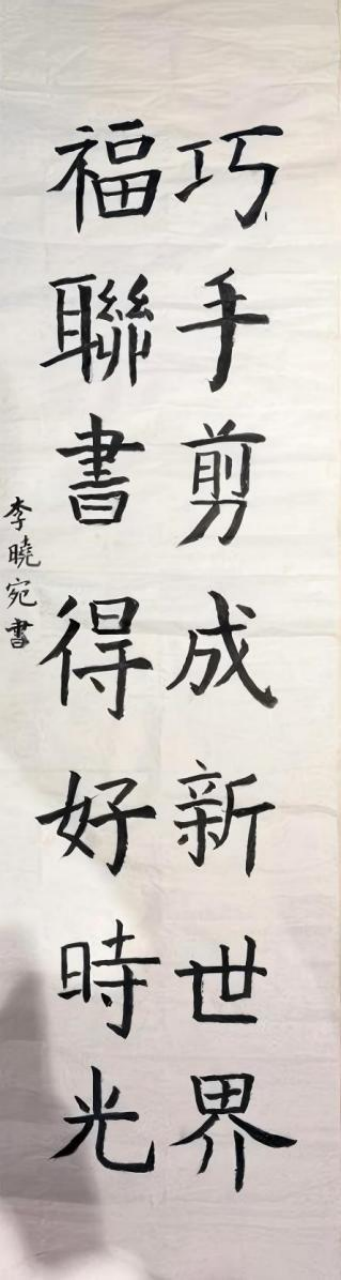 巧手剪成新世界
福聯書得好時光
李曉宛書